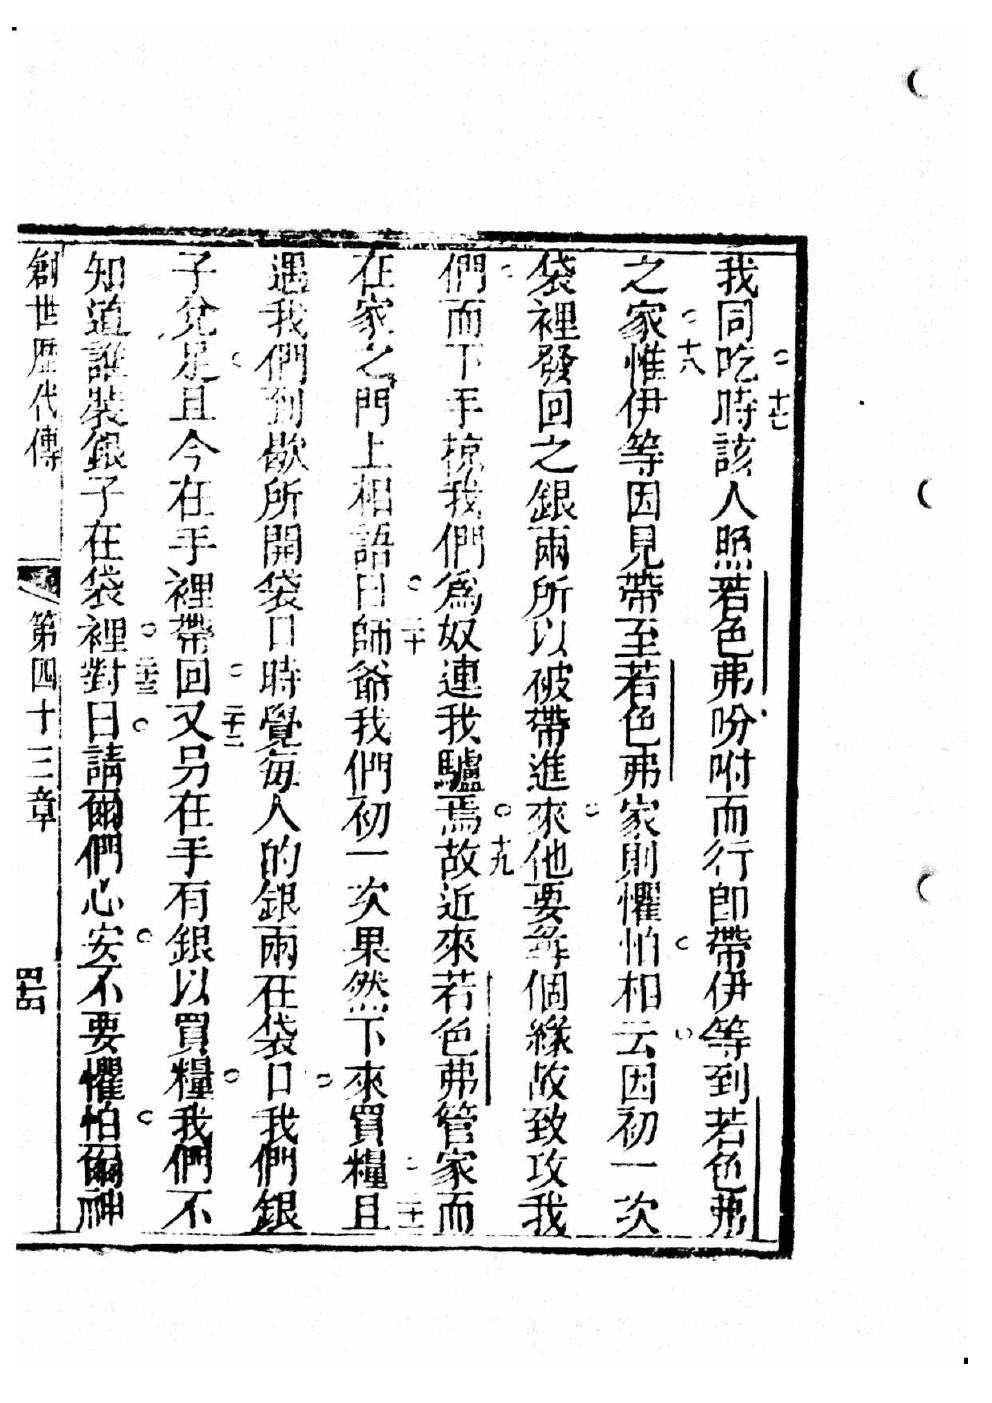 我同吃時該人照若色弗吩咐而行卽帶伊等到若色弗
之家惟伊等因見帶至若色弗家則懼怕相云因初一次
袋裡發回之銀兩所以被帶進來他要尋個緣故致攻我
們而下手掠我們爲奴連我驢焉故近來若色弗管家而
在家之門上相語曰師爺我們初一次果然下來買糧且
遇我們到歇所開袋口時覺每人的銀兩在袋口我們銀
子兌足且今在手裡帶回又另在手有銀以買糧我們不
知道誰裝銀子在袋裡對曰請爾們心安不要懼怕爾神
十七
十八
十九
二十
二十一
二十二
二十三
創世歷代傳
第四十三章
四十四